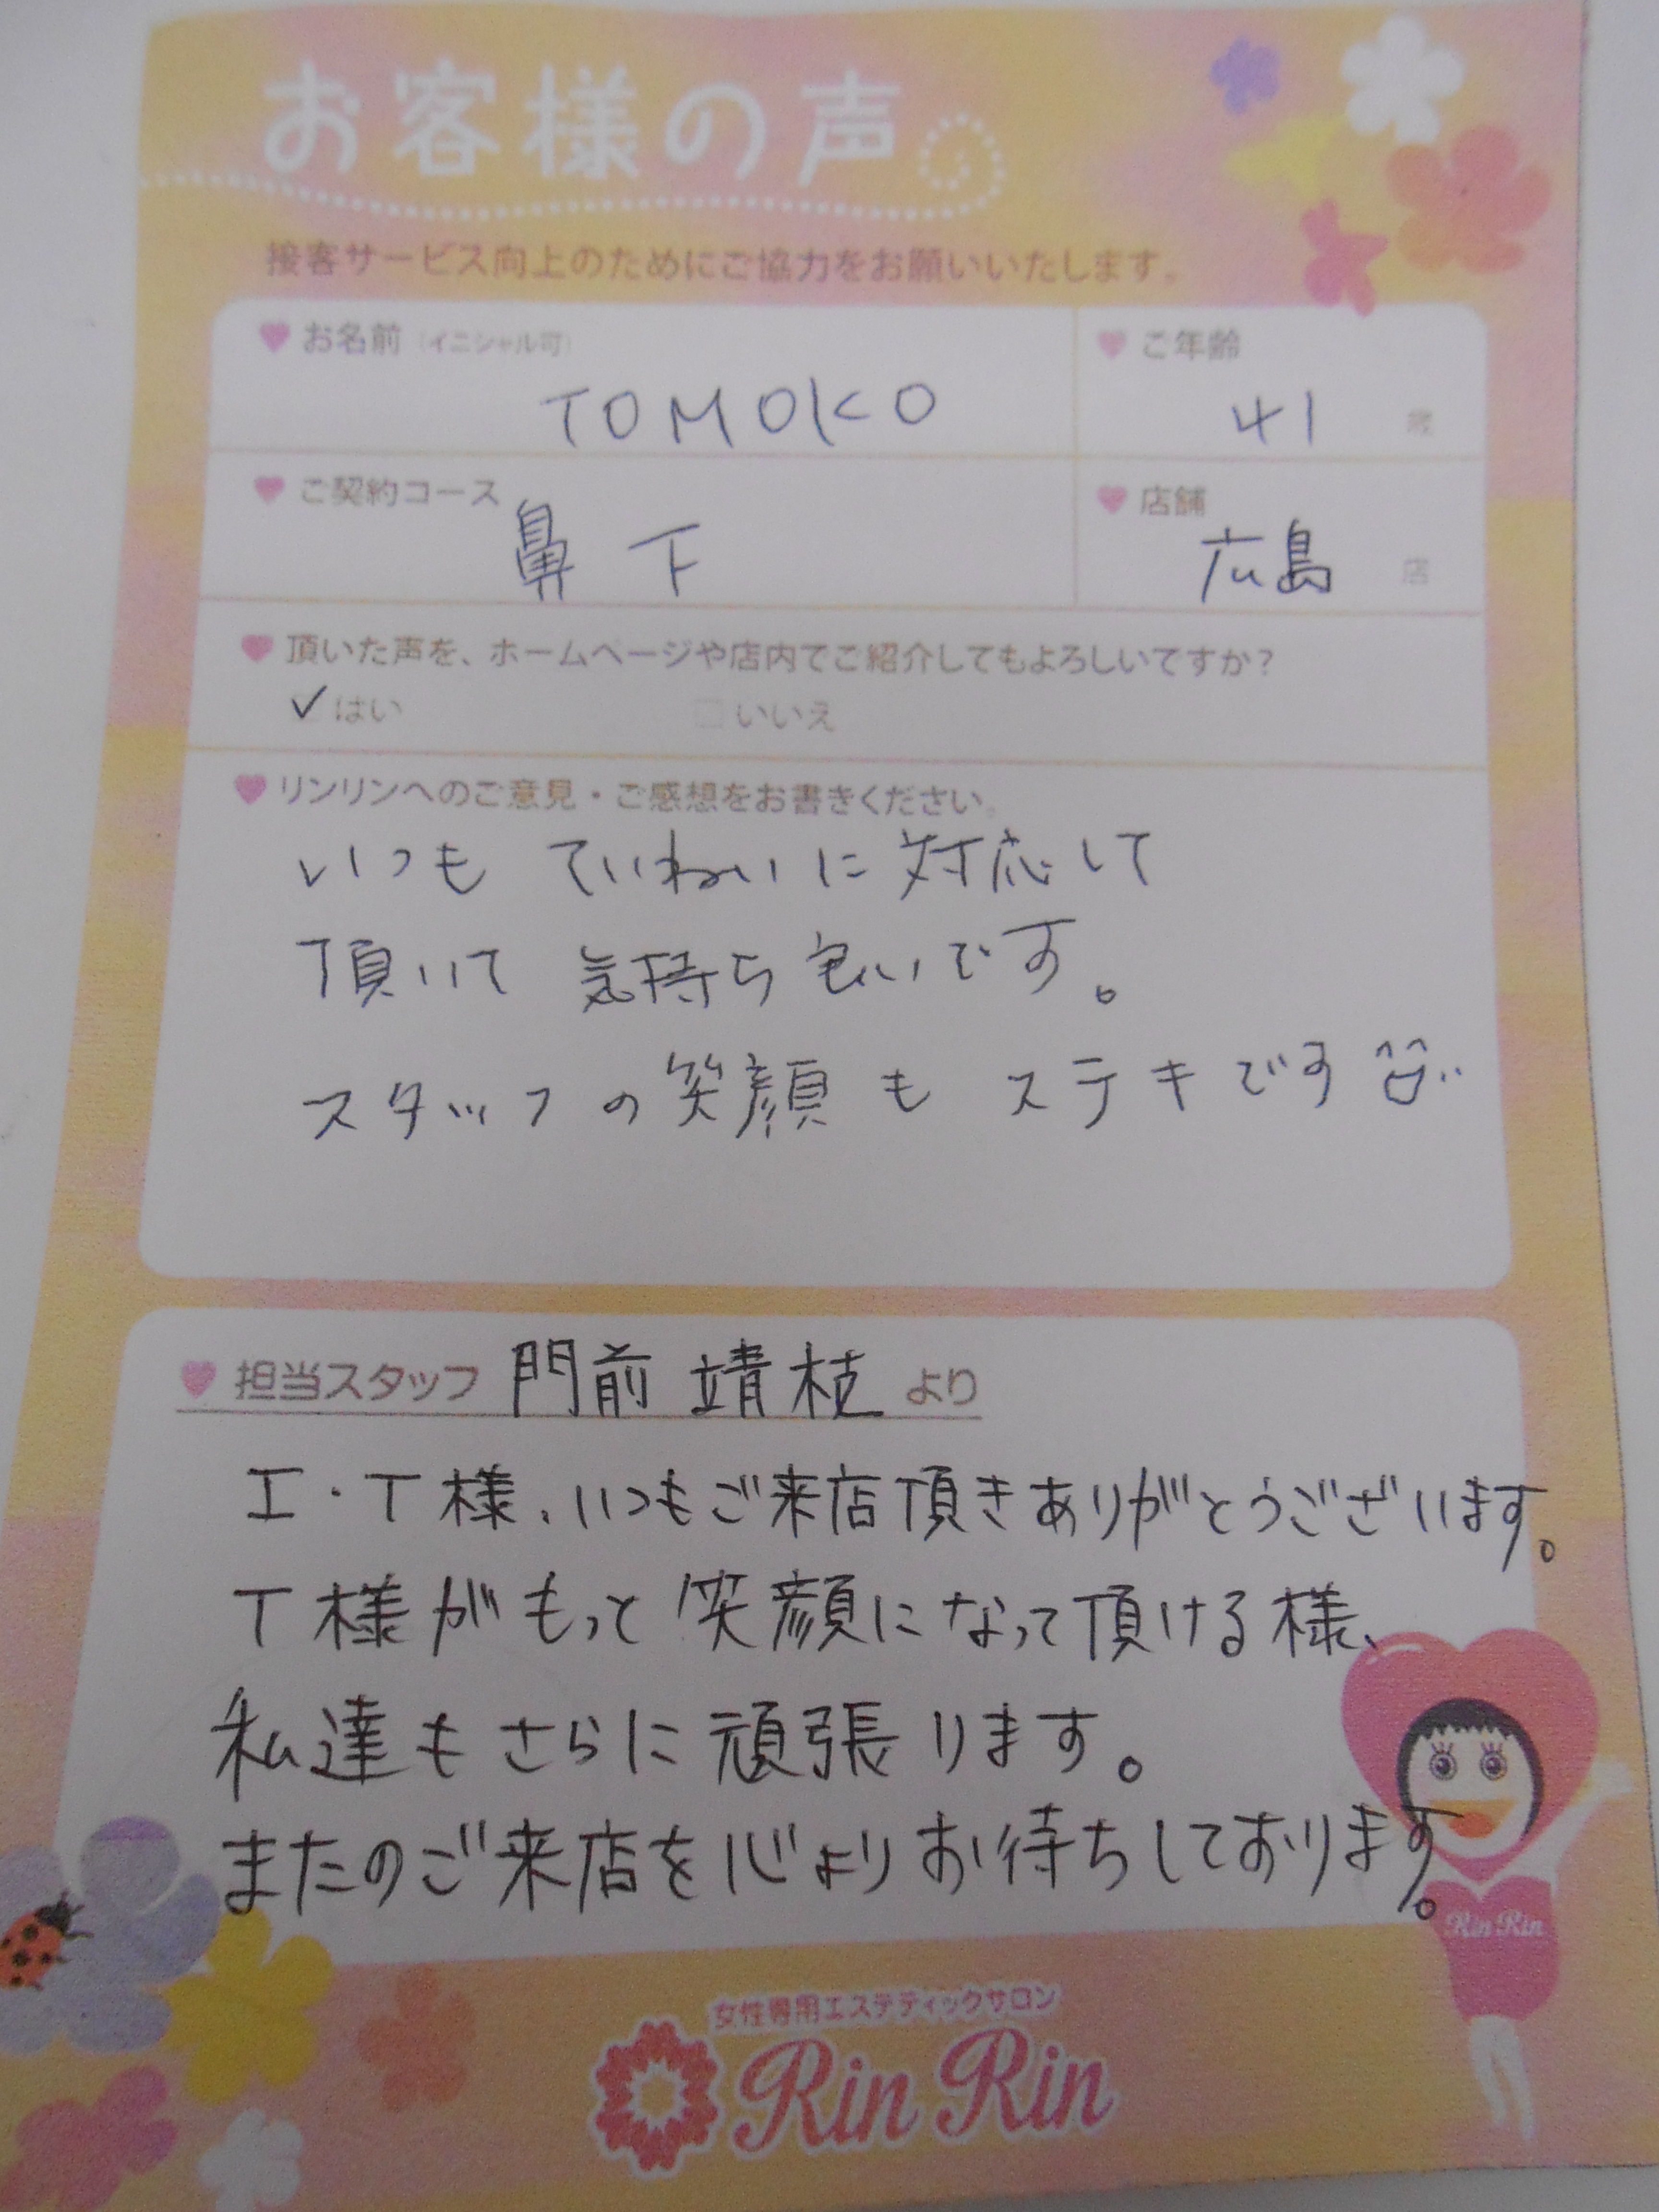 お客様の声
接客サービス向上のためにご協力をお願いいたします。
お名前（イニシャル可）
TOMOKO
ご年齢
41歳
ご契約コース
鼻下
店舗
広島店
頂いた声を、ホームページや店内でご紹介してもよろしいですか？
✓はい □いいえ
リンリンへのご意見・ご感想をお書きください。
いつも ていねいに対応して
頂いて 気持ち良いです。
スタッフの笑顔も ステキです
担当スタッフ 門前 靖枝 より
I・T様、いつもご来店頂きありがとうございます。
T様がもっと笑顔になって頂ける様、
私達もさらに頑張ります。
またのご来店を心よりお待ちしております。
Rin Rin
女性専用エステティックサロン
Rin Rin